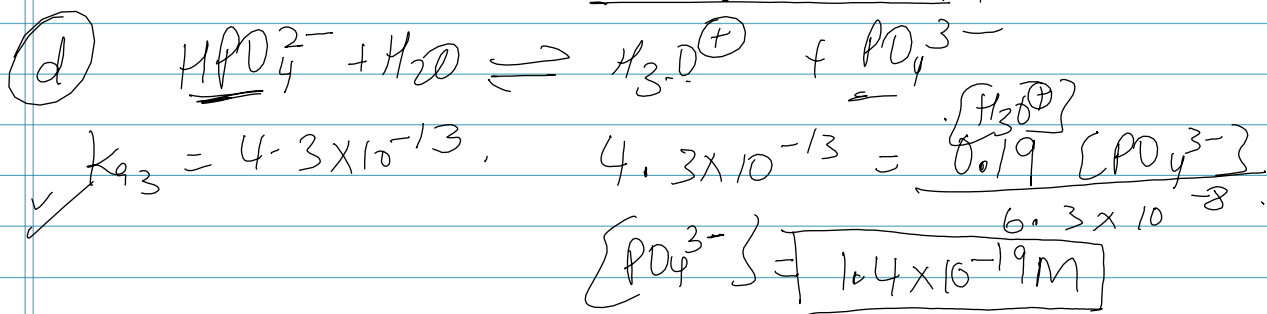 (d) HPO₄²⁻ + H₂O ⇌ H₃O⊕ + PO₄³⁻
Ka₃ = 4.3×10⁻¹³. 4.3×10⁻¹³ = [H₃O⊕] 0.19 [PO₄³⁻] / 6.3×10⁻⁸
[PO₄³⁻] = 1.4×10⁻¹⁹M